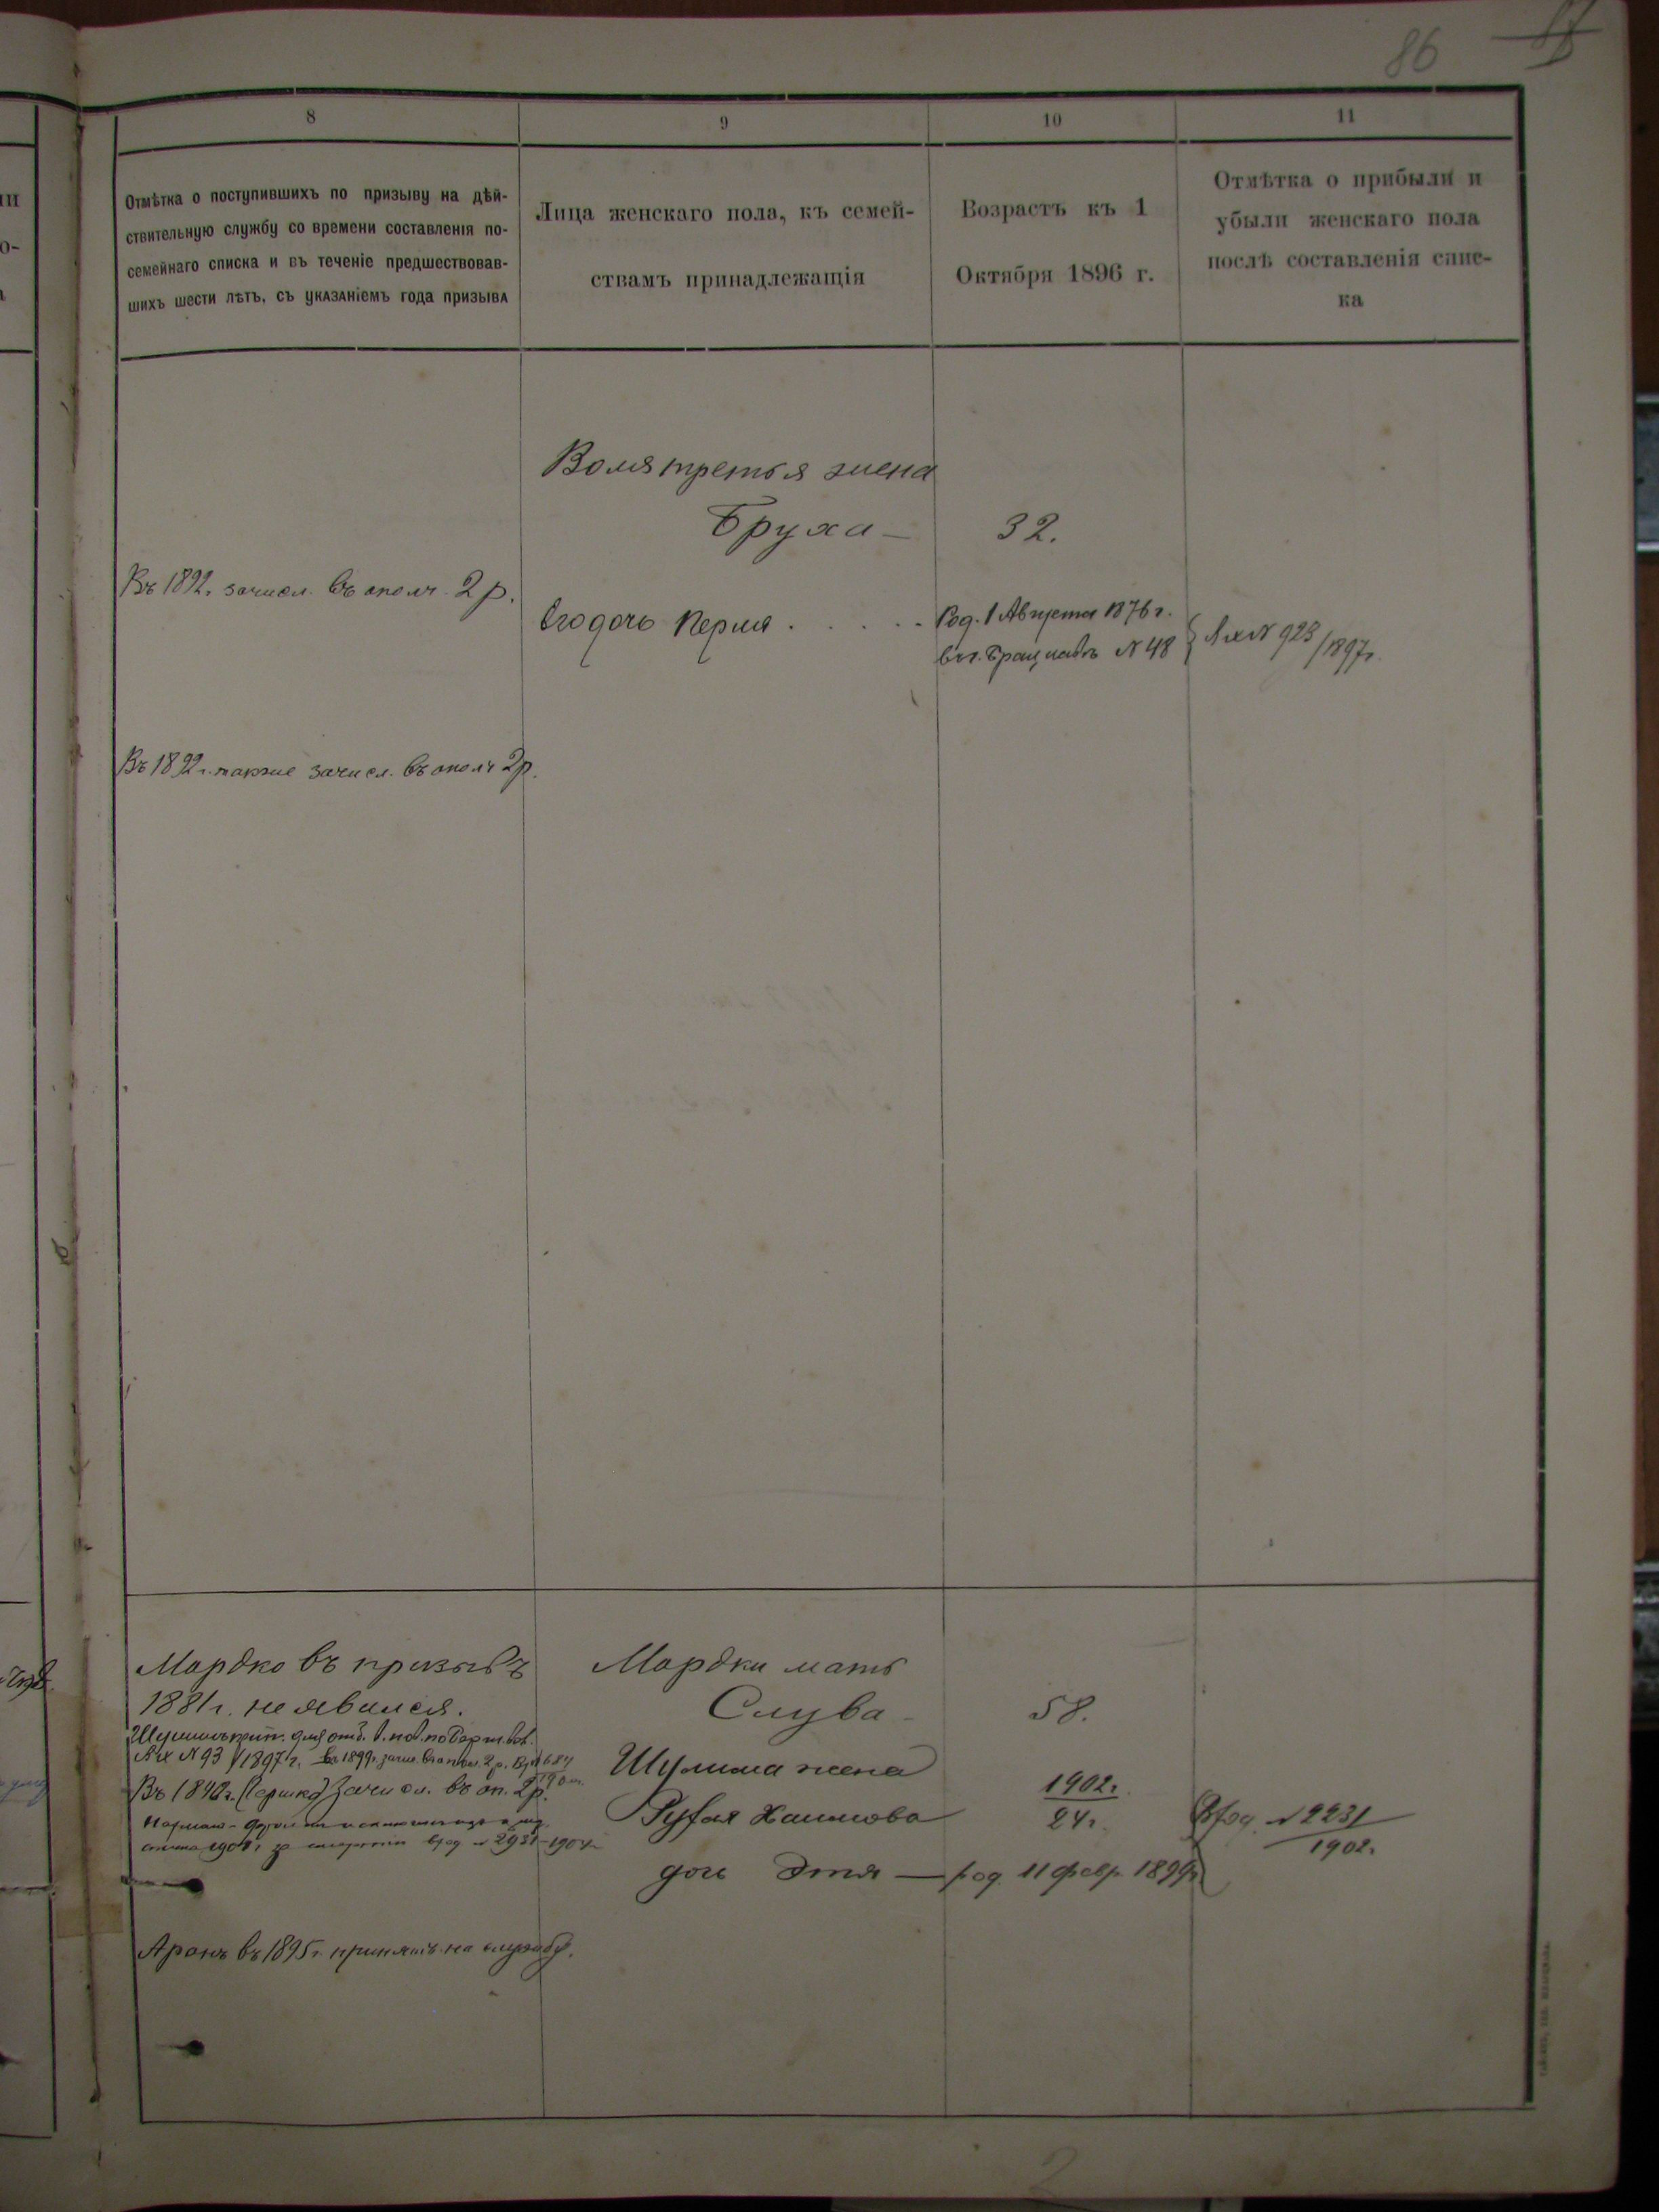 86
8
9
10
11
Отмѣтка о поступившихъ по призыву на дѣй-
ствительную службу со времени составленія по-
семейнаго списка и въ теченіе предшествовав-
шихъ шести лѣтъ, съ указаніемъ года призыва
Лица женскаго пола, къ семей-
ствамъ принадлежащія
Возрастъ къ 1
Октября 1896 г.
Отмѣтка о прибыли и
убыли женскаго пола
послѣ составленія спис-
ка
третья жена
Бруха - 32.
Въ 1892г. зачисл. въ ополч. 2 р.
Его дочь Перля . . . . . Род. 1 Августа 1876 г.
въ г. Брацлавѣ № 48 № 923/1897г.
Въ 1892 г. также зачисл. въ ополч 2р.
Мордко въ призывъ
1881г. не явился.
№ 93 / 1897 г. въ 1899г. зачис. въ опол. 2 р.
зачисл. въ оп. 2р.
Аронъ въ 1895г. принятъ на службу.
Мордки мать
Слува - 58.
Шулима жена
Хаимова 1902г.
24г. № 2231
1902.
дочь Этя — род. 11 февр. 1899г.